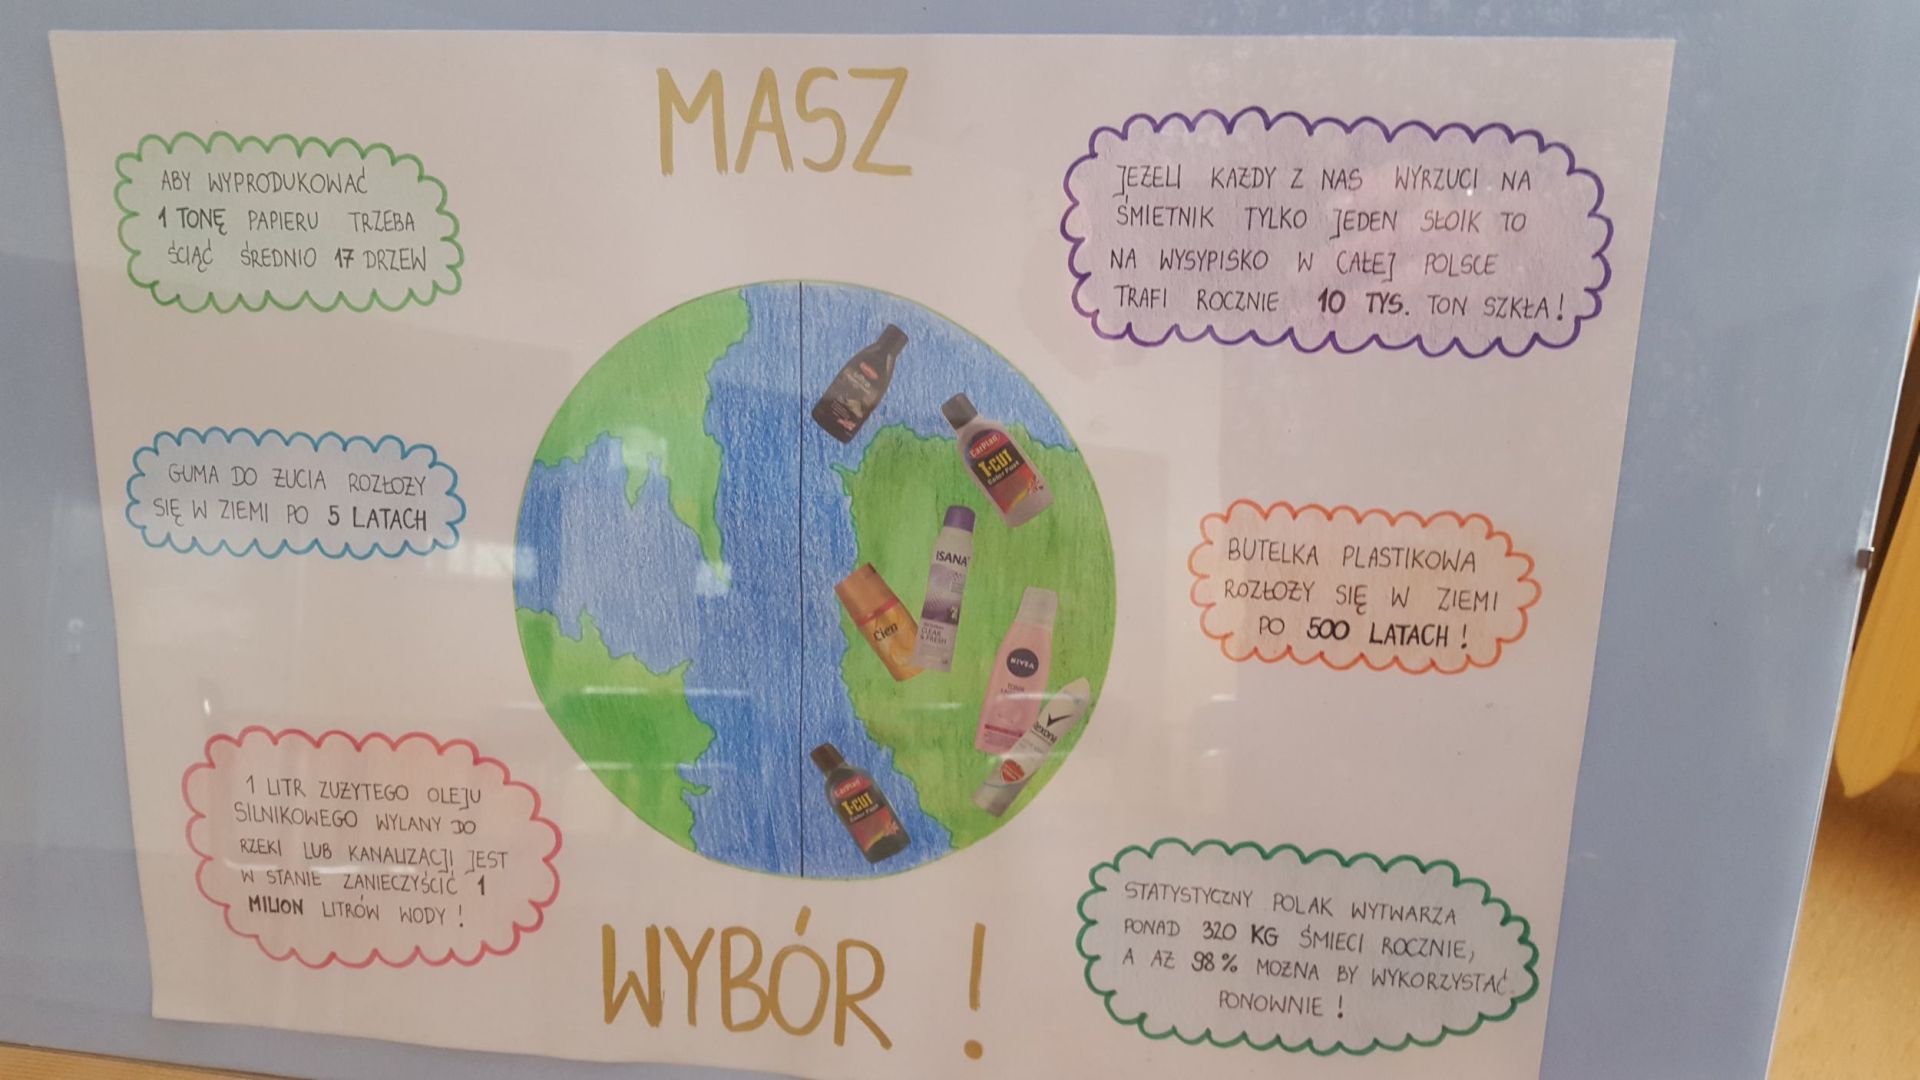 MASZ
ABY WYPRODUKOWAĆ
1 TONĘ PAPIERU TRZEBA
ŚCIĄĆ ŚREDNIO 17 DRZEW
JEŻELI KAŻDY Z NAS WYRZUCI NA
ŚMIETNIK TYLKO JEDEN SŁOIK TO
NA WYSYPISKO W CAŁEJ POLSCE
TRAFI ROCZNIE 10 TYS. TON SZKŁA!
GUMA DO ŻUCIA ROZŁOŻY
SIĘ W ZIEMI PO 5 LATACH
BUTELKA PLASTIKOWA
ROZŁOŻY SIĘ W ZIEMI
PO 500 LATACH!
1 LITR ZUŻYTEGO OLEJU
SILNIKOWEGO WYLANY DO
RZEKI LUB KANALIZACJI JEST
W STANIE ZANIECZYŚCIĆ 1
MILION LITRÓW WODY!
STATYSTYCZNY POLAK WYTWARZA
PONAD 320 KG ŚMIECI ROCZNIE,
A AŻ 98% MOŻNA BY WYKORZYSTAĆ
PONOWNIE!
CarPlan
T-CUT
Color Fast
ISANA
CLEAR
& FRESH
Cien
NIVEA
rexona
CarPlan
T-CUT
Color Fast
WYBÓR!